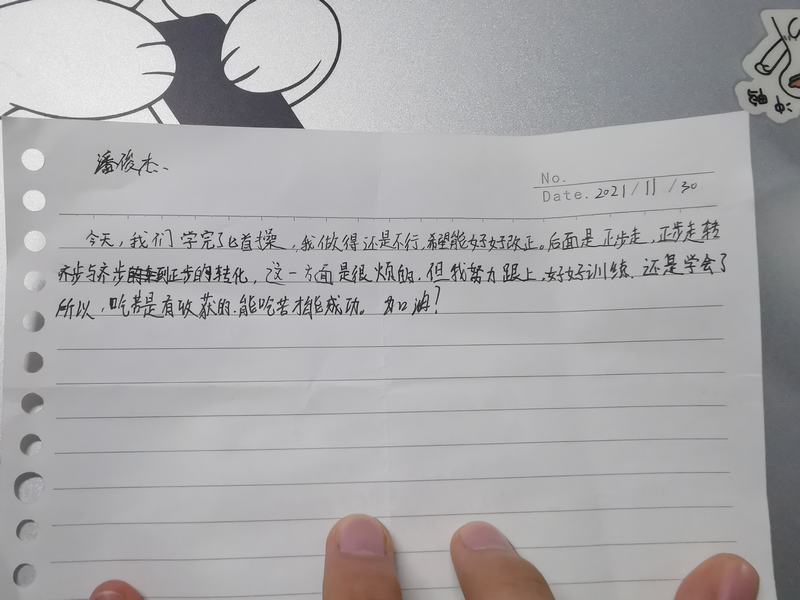 潘俊杰、
No.
Date. 2021/11/30
今天，我们学完了匕首操，我做得还是不行，希望能好好改正。后面是正步走，正步走转
齐步与齐步到正步的转化，这一方面是很烦的，但我努力跟上，好好训练，还是学会了
所以，吃苦是有收获的，能吃苦才能成功。加油！